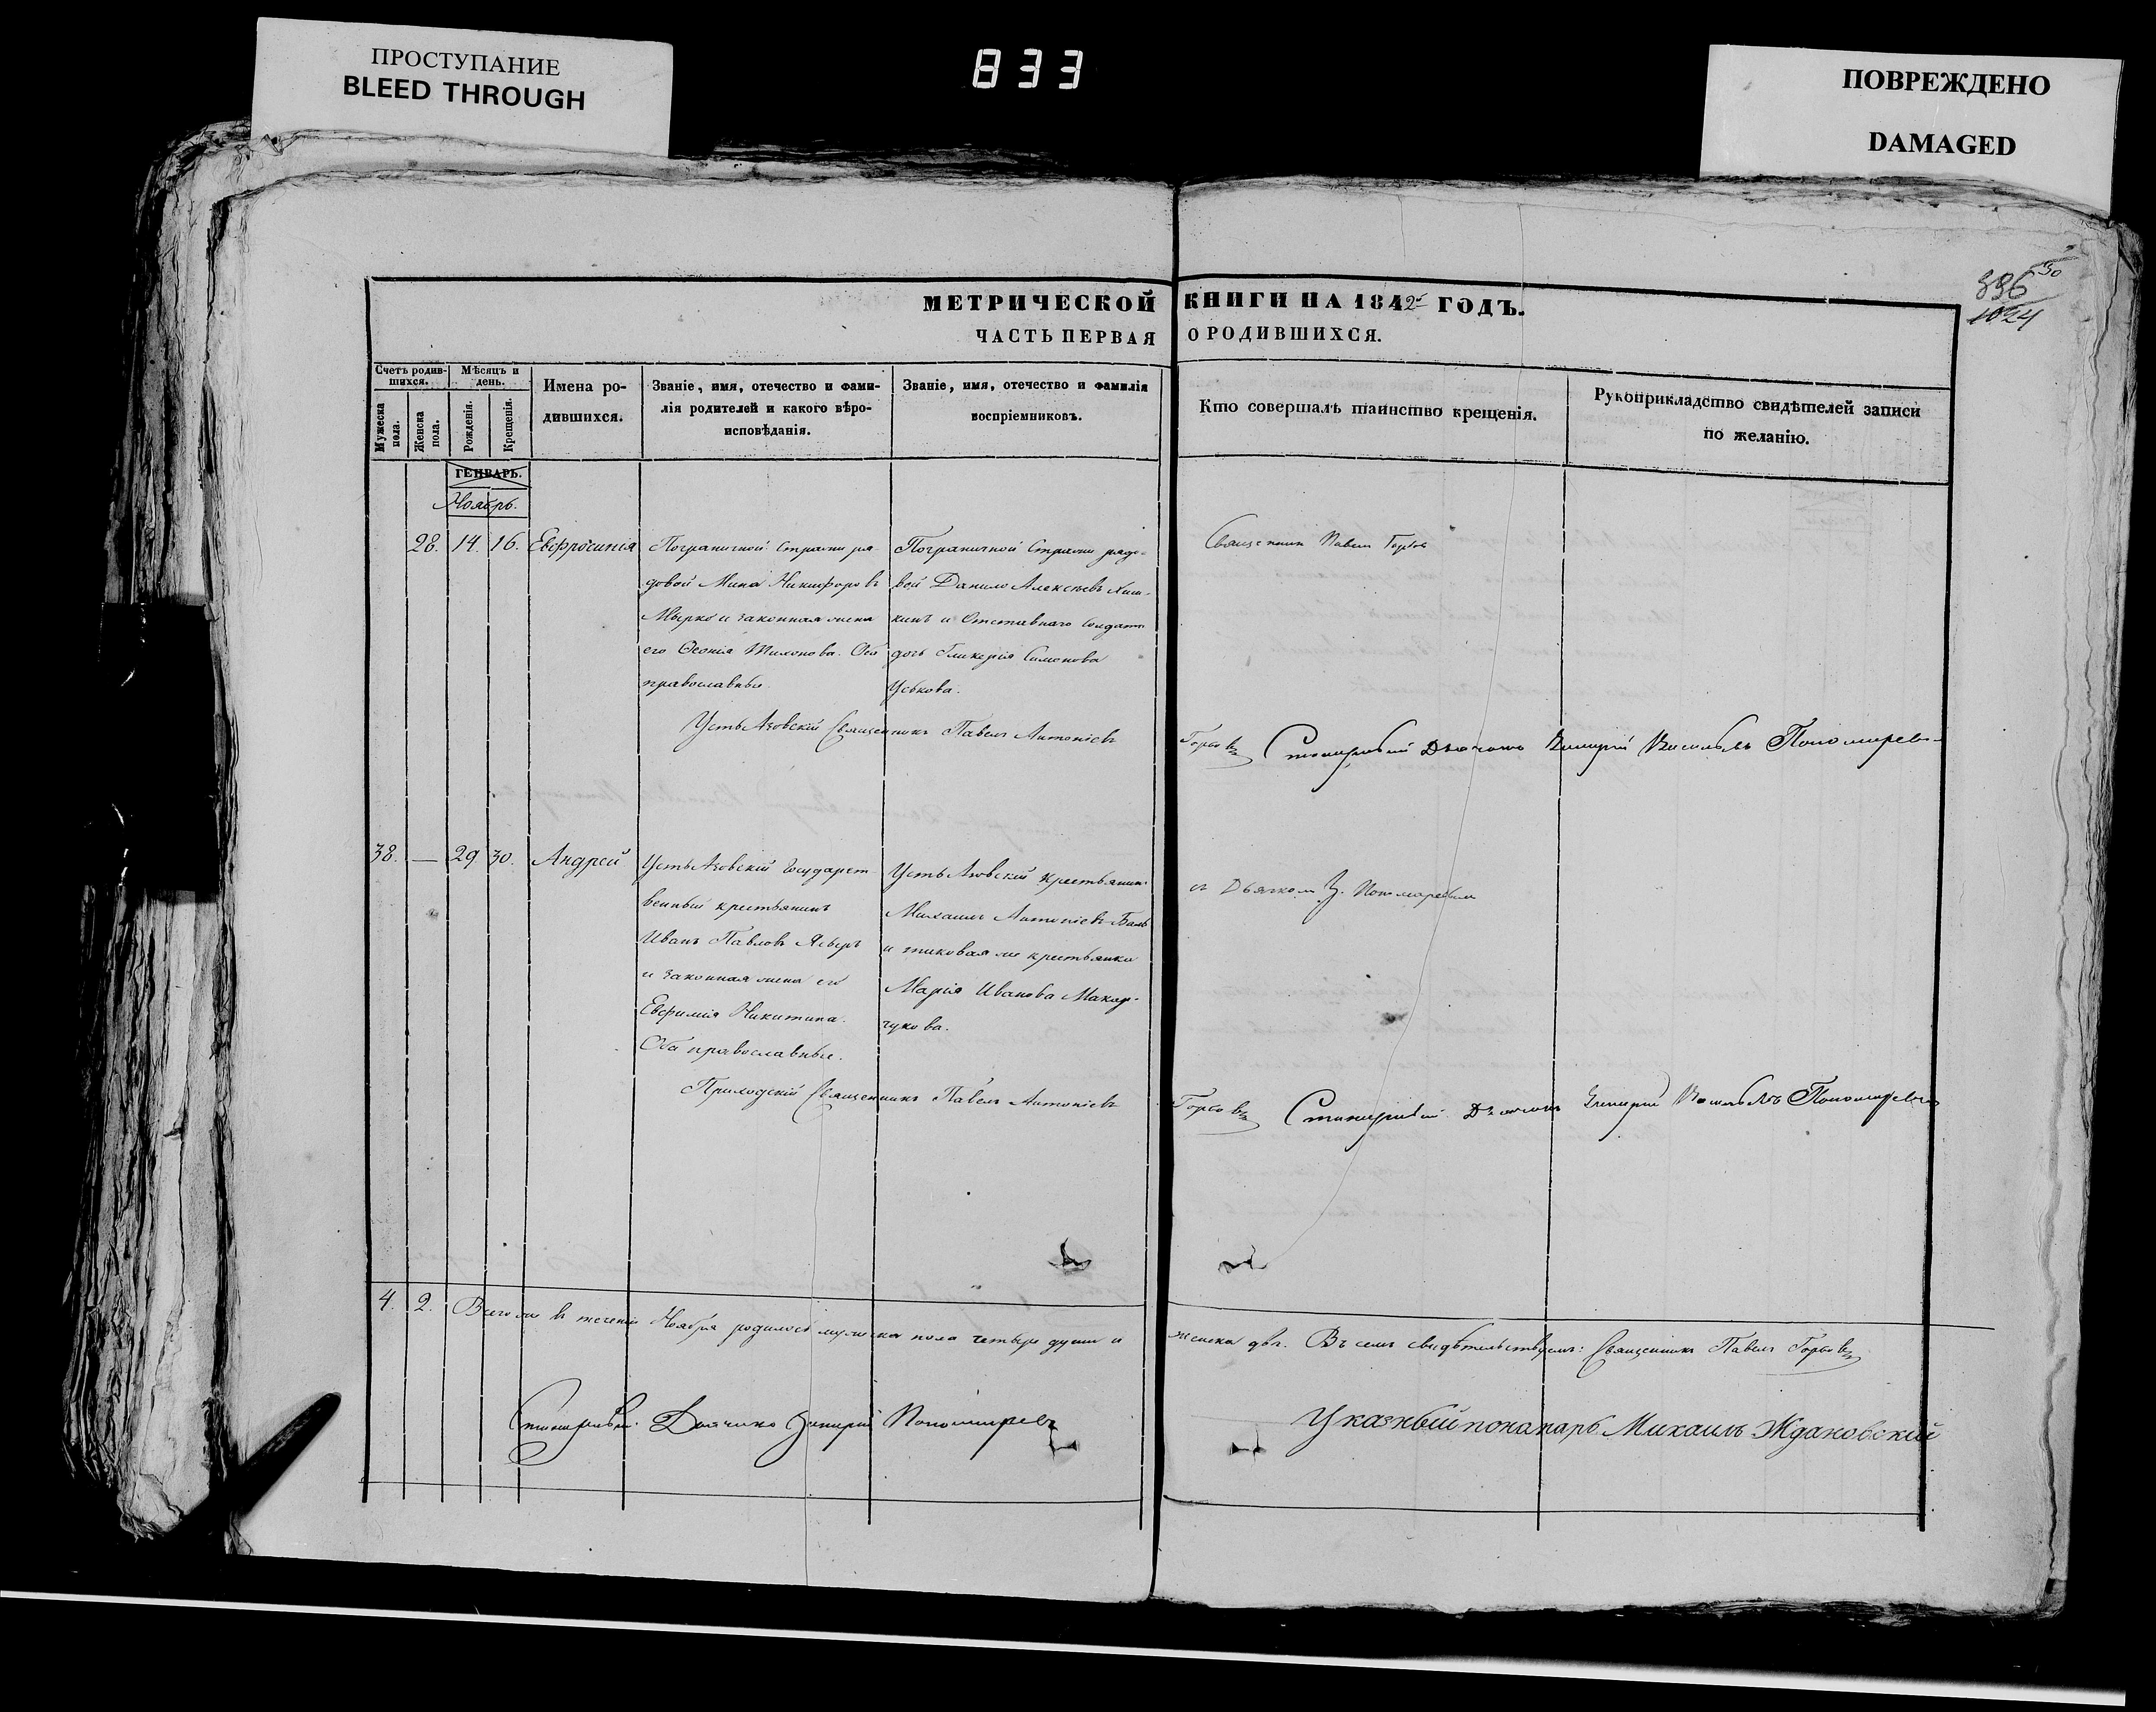 ПРОСТУПАНИЕ
BLEED THROUGH
833
ПОВРЕЖДЕНО
DAMAGED
396 30
1024
МЕТРИЧЕСКОЙ КНИГИ НА 1842 ГОДЪ.
ЧАСТЬ ПЕРВАЯ О РОДИВШИХСЯ.
Счетъ родив-
шихся.
Мужеска
пола.
Женска
пола.
Мѣсяцъ и
день.
Рожденія.
Крещенія.
Имена ро-
дившихся.
Званіе, имя, отечество и фами-
лія родителей и какого вѣро-
исповѣданія.
Званіе, имя, отечество и фамилія
воспріемниковъ.
Кто совершалъ таинство крещенія.
Рукоприкладство свидѣтелей записи
по желанію.
ГЕНВАРЬ.
Ноябрь.
28. 14. 16. Евфросинія
Пограничной Стражи ря-
довой Мина Никифоровъ
Мырко и законная жена
его Ѳеонія Тихонова. Оба
православные.
Пограничной Стражи рядо-
вой Данило Алексѣевъ
кинъ и Отставнаго Солдата
дочь Гликерія Симонова
Уськова.
Священникъ Павелъ Горбовъ
Усть Азовскій Священникъ Павелъ Антоніевъ Горбовъ Дьячокъ Васильевъ Пономаревъ
38. — 29 30. Андрей
Усть Азовскій Государст-
венный крестьянинъ
Иванъ Павловъ
и законная жена его
Евфимія Никитина.
Оба православные.
Усть Азовскій крестьянинъ
Михаилъ Антоніевъ
и таковая же крестьянка
Марія Иванова Макар-
чукова.
съ Дьячкомъ Пономаревымъ
Приходскій Священникъ Павелъ Антоніевъ Горбовъ Дьячокъ Васильевъ Пономаревъ
4. 2. Всего же въ теченіе Ноября родилось мужеска пола четыре души и женска двѣ. Въ семъ свидѣтельствуемъ: Священникъ Павелъ Горбовъ
Дьячокъ Пономаревъ
Указный понамарь Михаилъ Ждановский